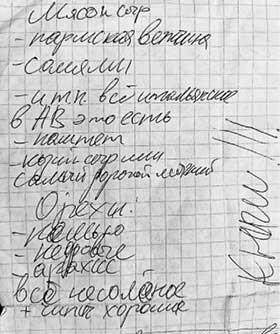 Мясо и сыр
- пармская ветчина
- салями
- и т.п. всё итальянское
в АВ это есть
- паштет
- сыр или
самый дорогой
Орехи:
- кешью
- кедровые
- арахис
всё несолёное
+ чипсы хорошие
!!!